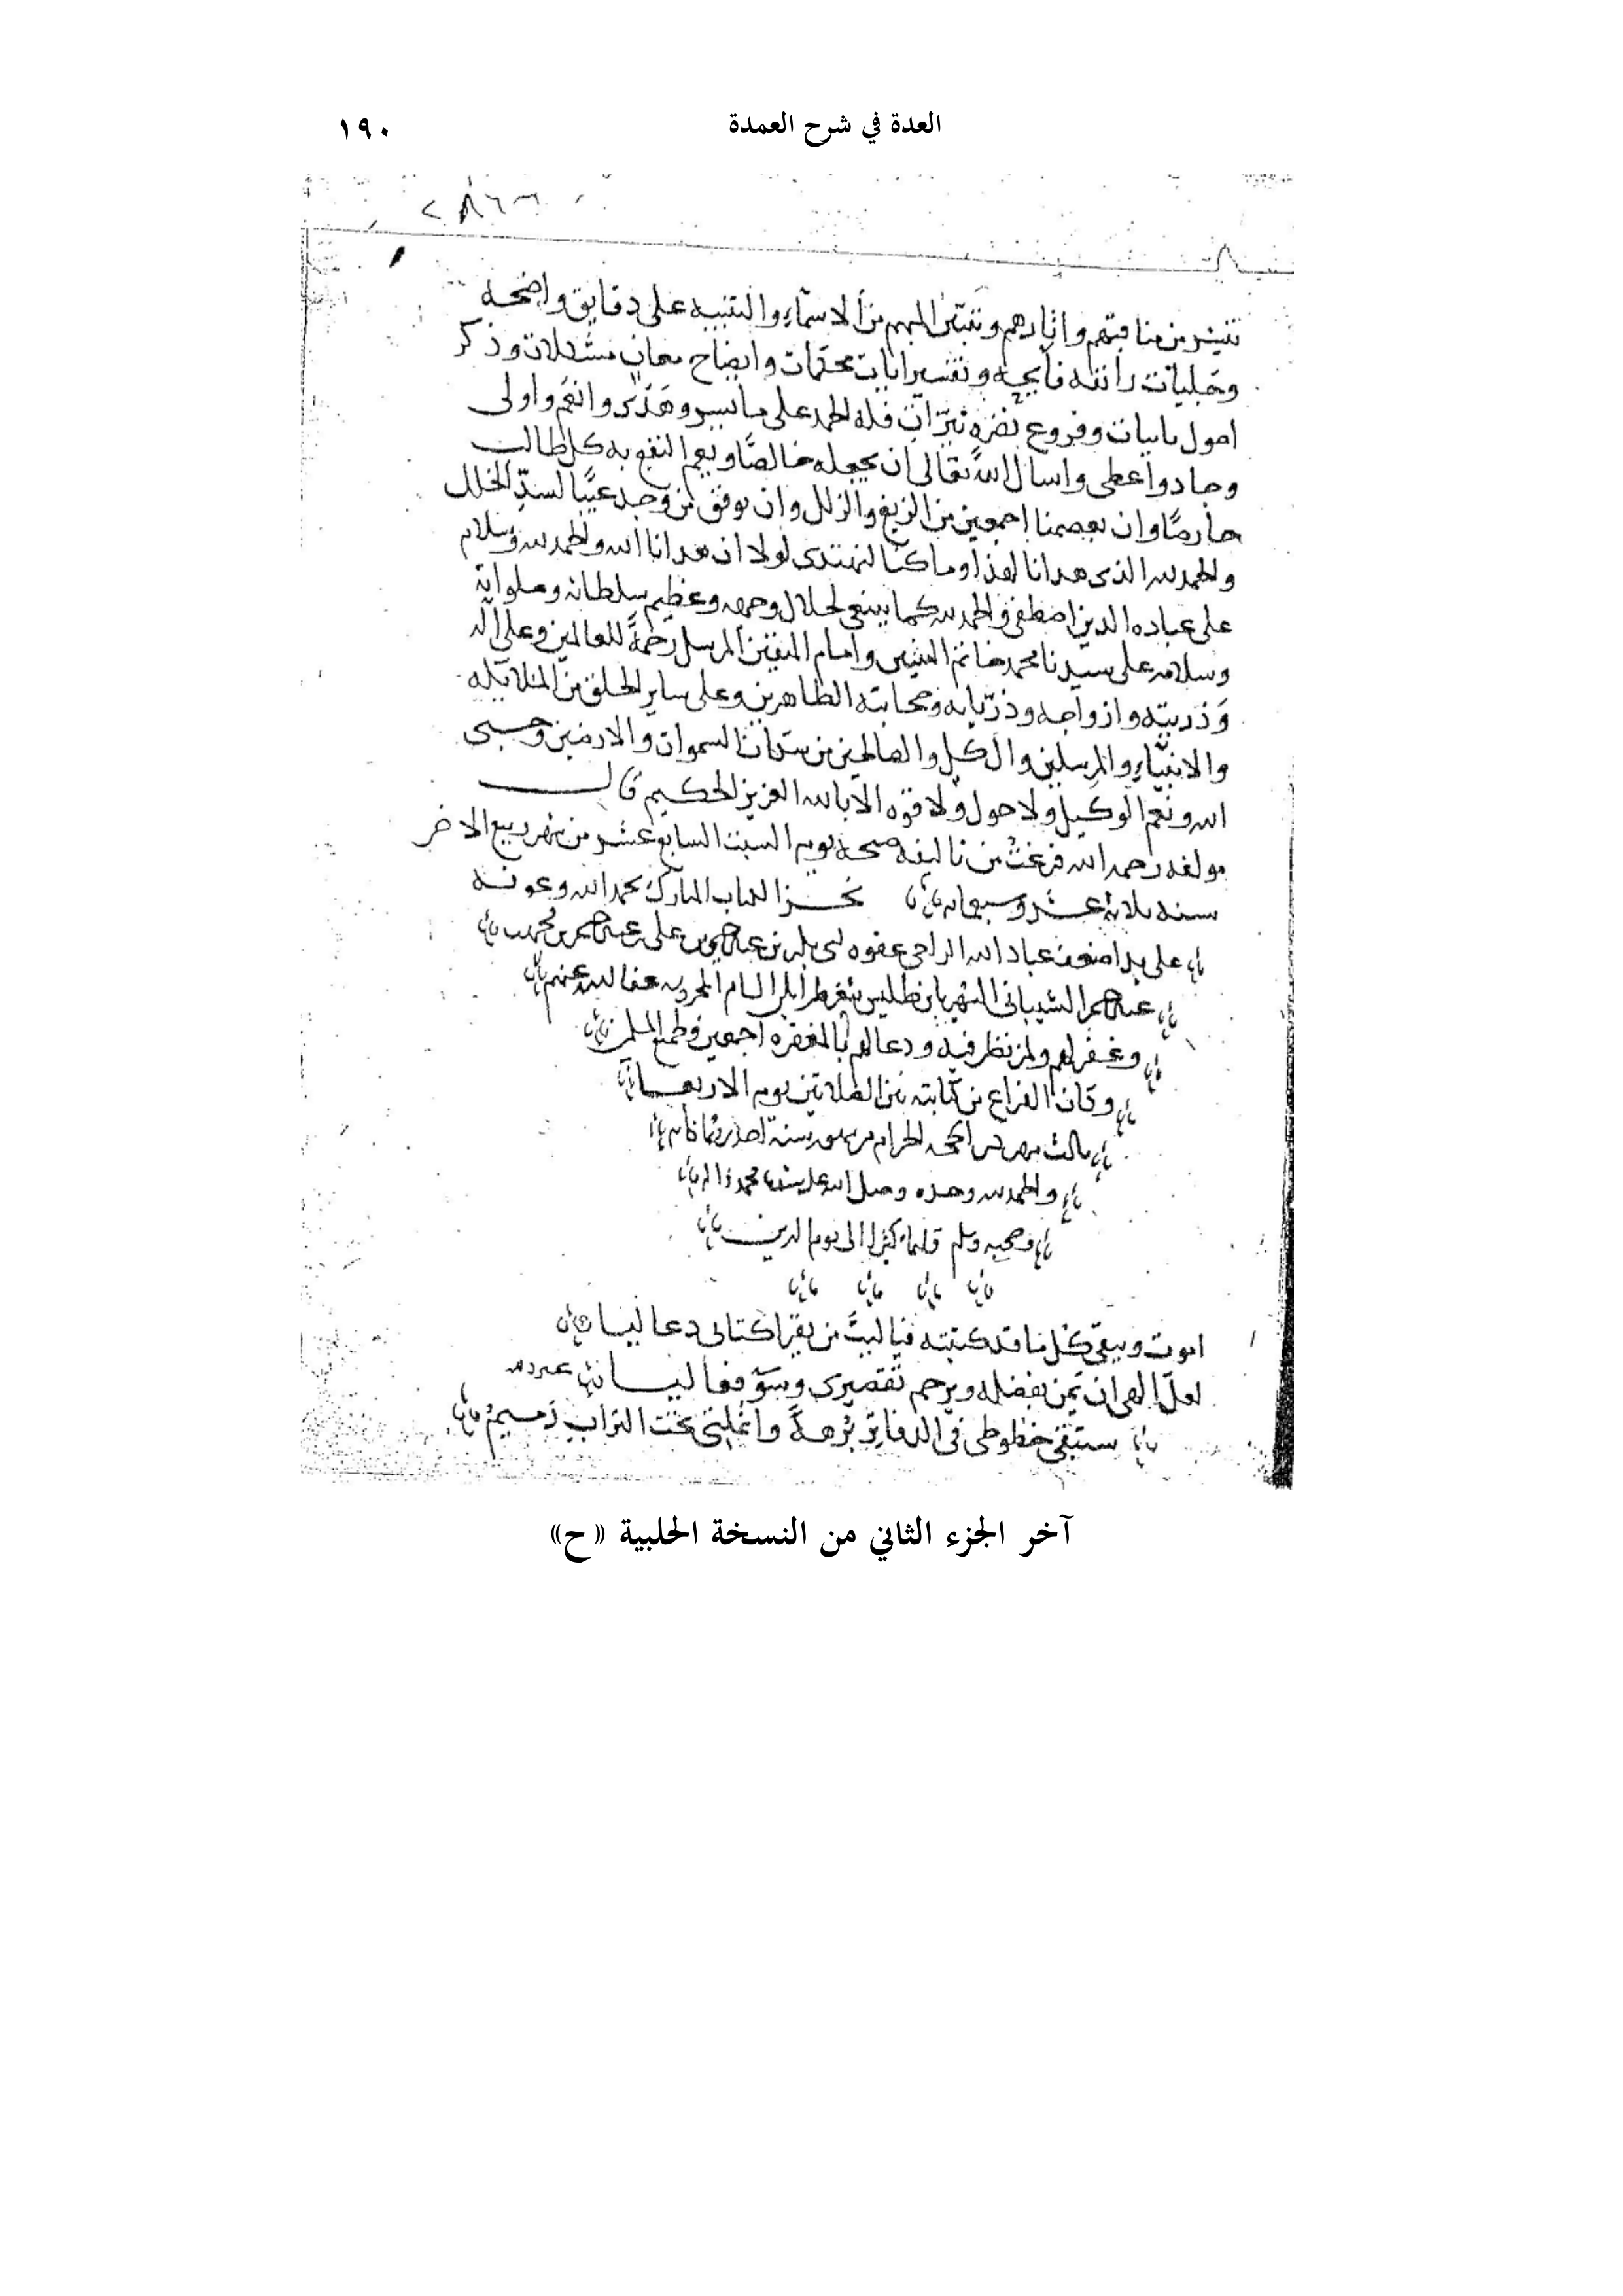 العدة في شرح العمدة
١٩٠
من مناقبهم واثارهم وتبيين المبهم من الاسماء والتنبيه على دقايق واضحه
وجليات وتفسير ايات محكمات وايضاح معان مشكلات وذكر
اصول وفروع فله الحمد على ما يسر وانعم واولى
وجاد واعطى واسال الله تعالى ان يجعله خالصا ويعم النفع به كل طالب
وان يعصمنا اجمعين من الزيغ والزلل وان يوفق من وجد عيبا لسد الخلل
والحمد لله الذي هدانا لهذا وما كنا لنهتدى لولا ان هدانا الله والحمد لله وسلام
على عباده الذين اصطفى والحمد لله كما ينبغى لجلال وجهه وعظيم سلطانه وصلواته
وسلامه على سيدنا محمد خاتم النبيين وامام المتقين المرسل رحمة للعالمين وعلى اله
وذريته وازواجه وصحابته الطاهرين وعلى ساير الخلق من الملايكه
والانبياء والمرسلين وال كل والصالحين من سكان السموات والارضين وحسبى
الله ونعم الوكيل ولا حول ولا قوه الا بالله العزيز الحكيم قال
مولفه رحمه الله فرغت من تاليفه صحه يوم السبت السابع عشر من شهر ربيع الاخر
سنه ثلاثه عشر وسبعمائه نجز الكتاب المبارك بحمد الله وعونه
على يد اضعف عباد الله الراجى عفوه بن على بن
الشيبانى الشهير بابن عفا الله عنهم
وغفر لهم ولمن نظر فيه ودعا لهم بالمغفره اجمعين
وكان الفراغ من كتابته بين الصلاتين يوم الاربعا
ثالث الحرام سنة
والحمد لله وحده وصلى الله على سيدنا محمد واله
وصحبه وسلم كثيرا الى يوم الدين
اموت ويبقى كل ما قد كتبته فيا ليت من يقرا كتابى دعا ليا
لعل الهى ان يمن بفضله ويرحم تقصيرى وسو فعاليا
ستبقى خطوطى فى الدفاتر برهة وانملتى تحت التراب رميم
آخر الجزء الثاني من النسخة الحلبية «ح»